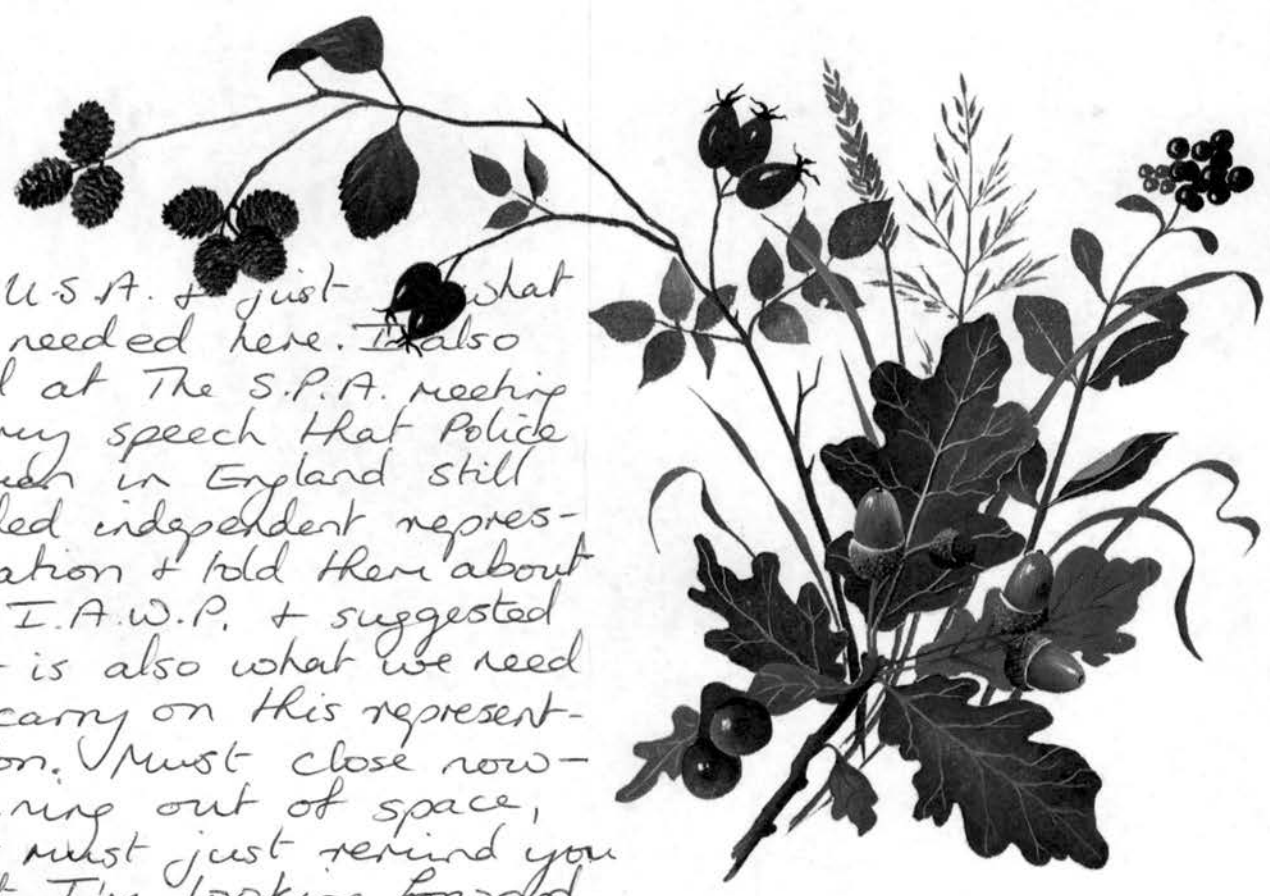 U.S.A. & just what
needed here. I also
at The S.P.A. meeting
my speech that Police
in England still
independent repres-
ation & told them about
I.A.W.P. & suggested
is also what we need
carry on this represent-
on. Must close now-
ning out of space,
must just remind you
I'm looking forward